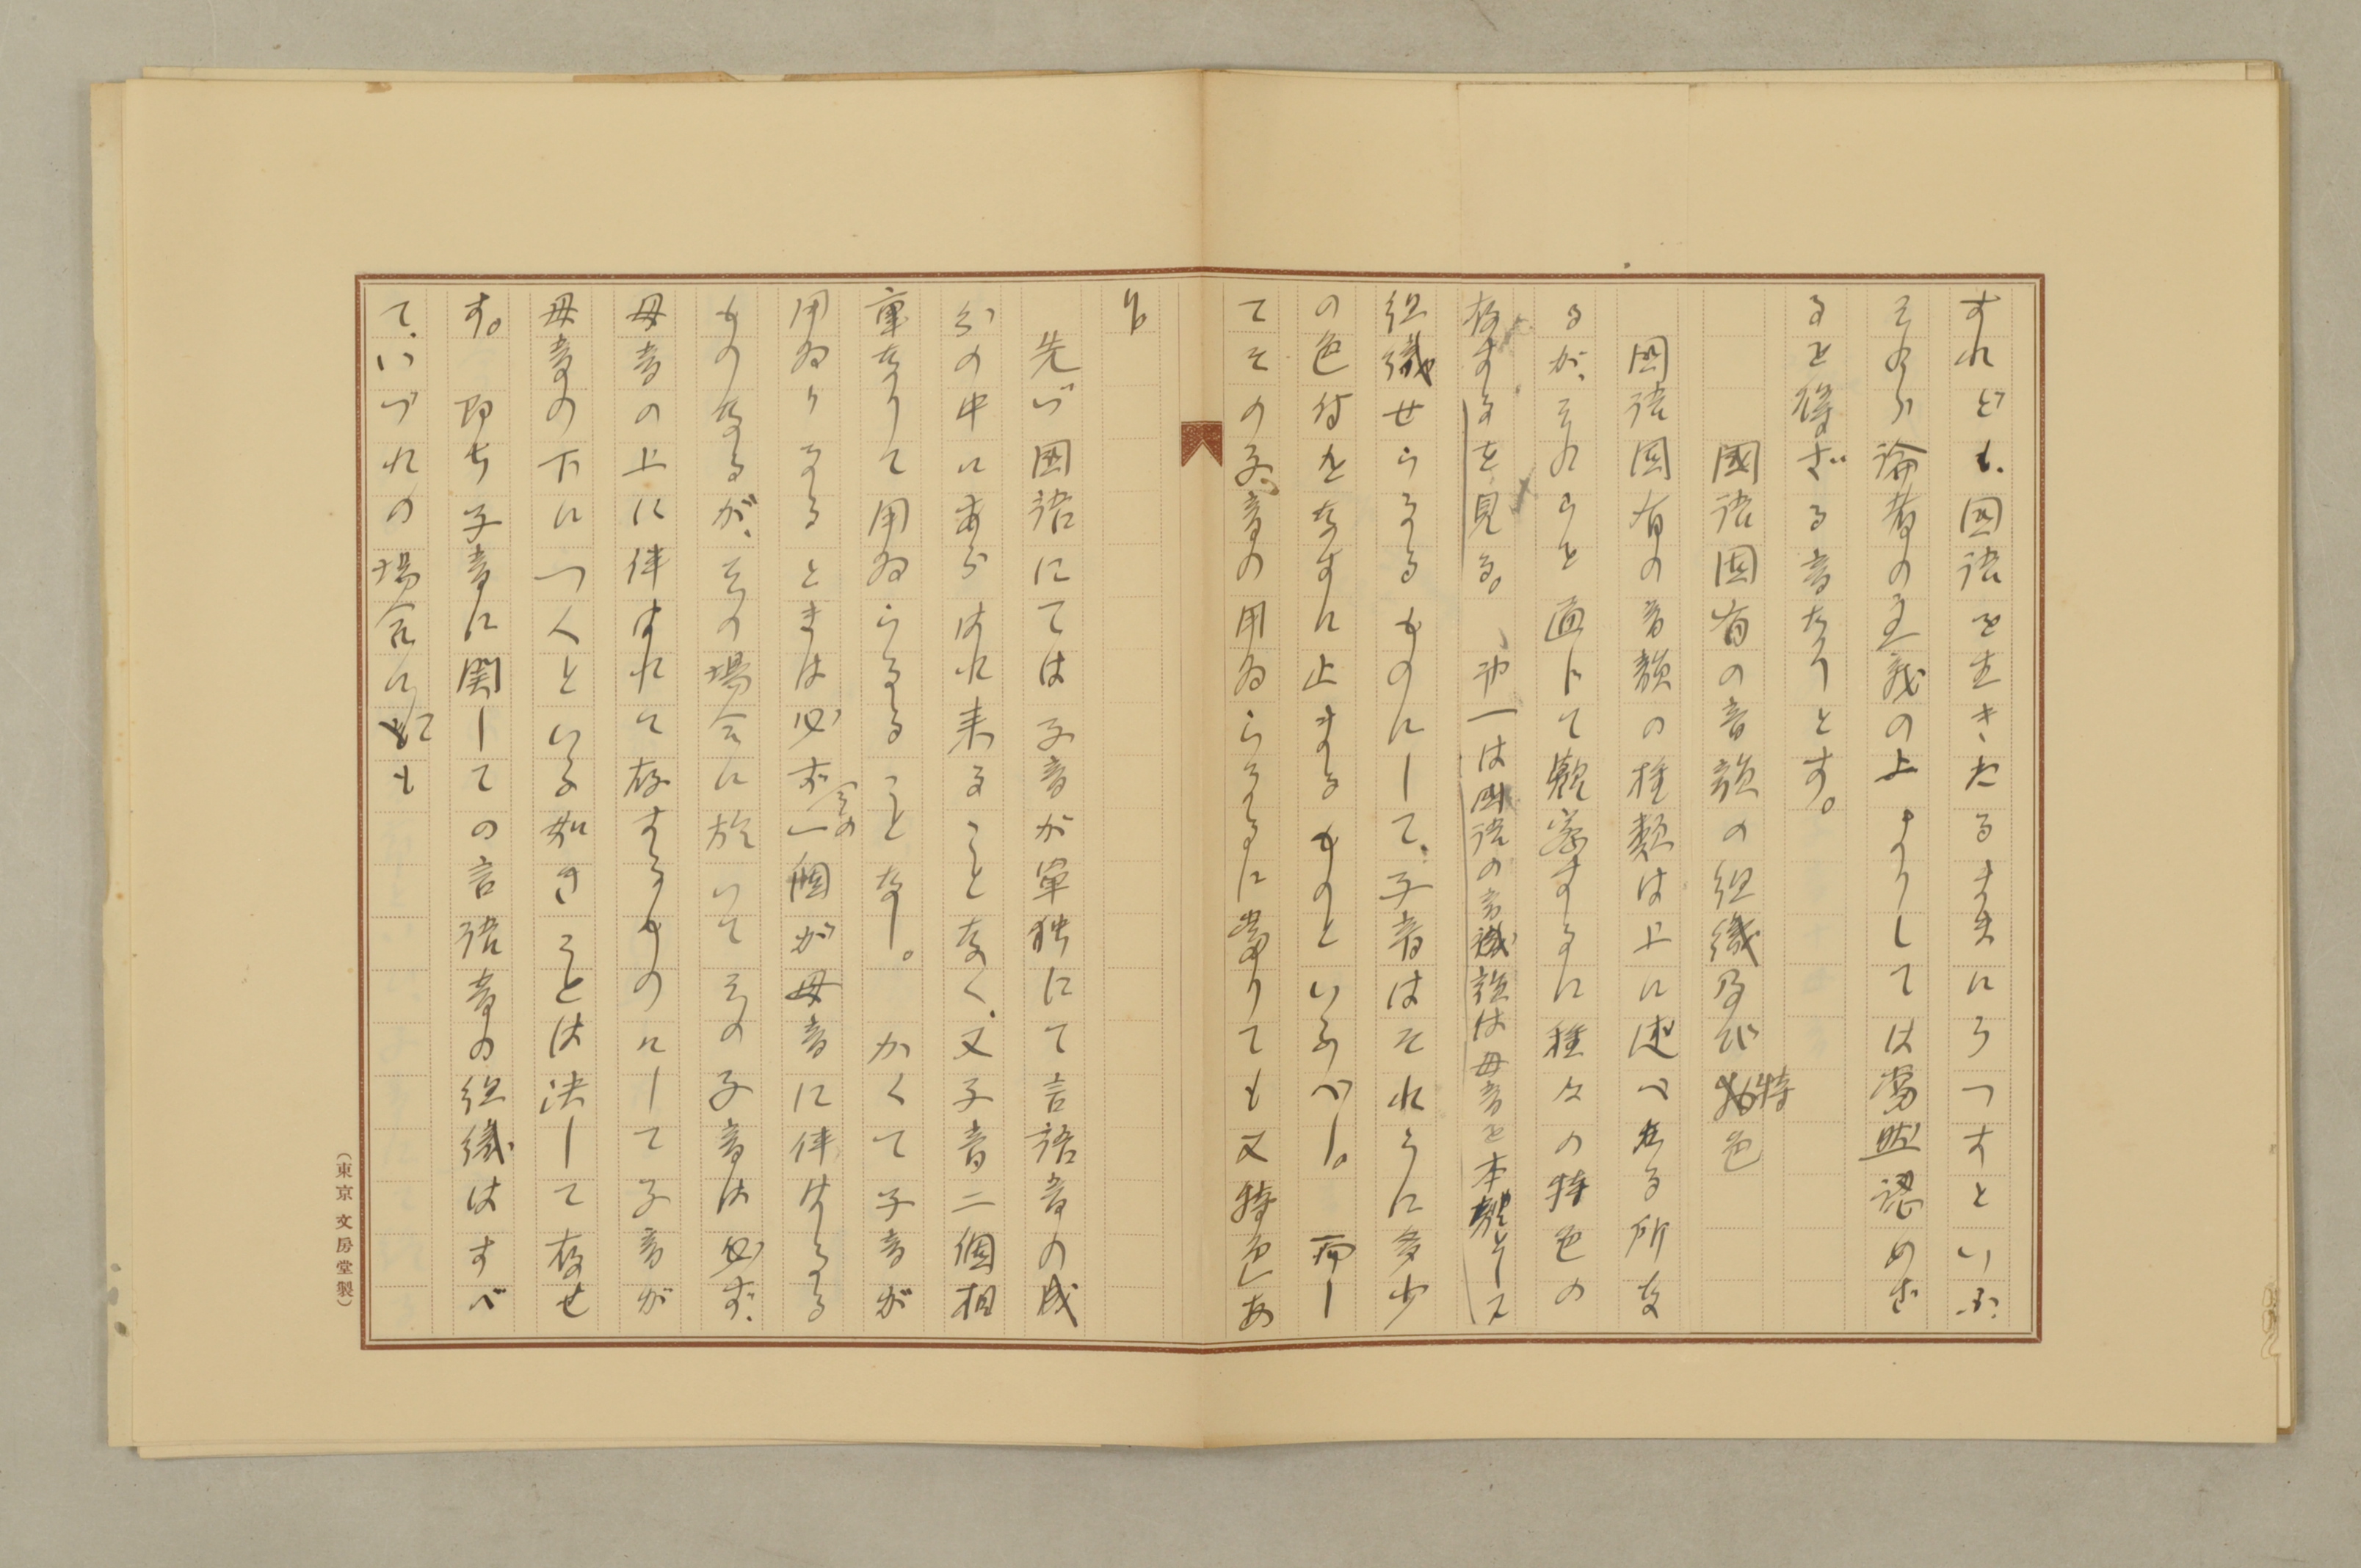 すれども、国語を生きたるまゝにうつすといふ、
そゝら論者の主義の上よりしては當然認めざ
るを得ざる音なりとす。
國語固有の音韻の組織及び特色
国語固有の音韻の種類は上に述べたる所な
るが、それらを通じて観察するに種々の特色の
存するを見る。第一は国語の音韻は母音を本体として
組織せらるゝものにして、子音はそれらに多少
の色付をなすに止まるものといふべし。而し
てその子音の用ゐらるゝに當りても又特色あ
り。
先づ国語にては子音が単独にて言語音の成
分の中にあらはれ来ることなく、又子音二個相
重なりて用ゐらるゝことなし。かくて子音が
用ゐらるゝときは必ず一個が母音に伴はるゝ
ものなるが、その場合に於いてその子音は必ず、
母音の上に伴はれて存するものにして子音が
母音の下につくといふ如きことは決して存せ
す。即ち子音に関しての言語音の組織はすべ
て、いづれの場合にても
(東京文房堂製)